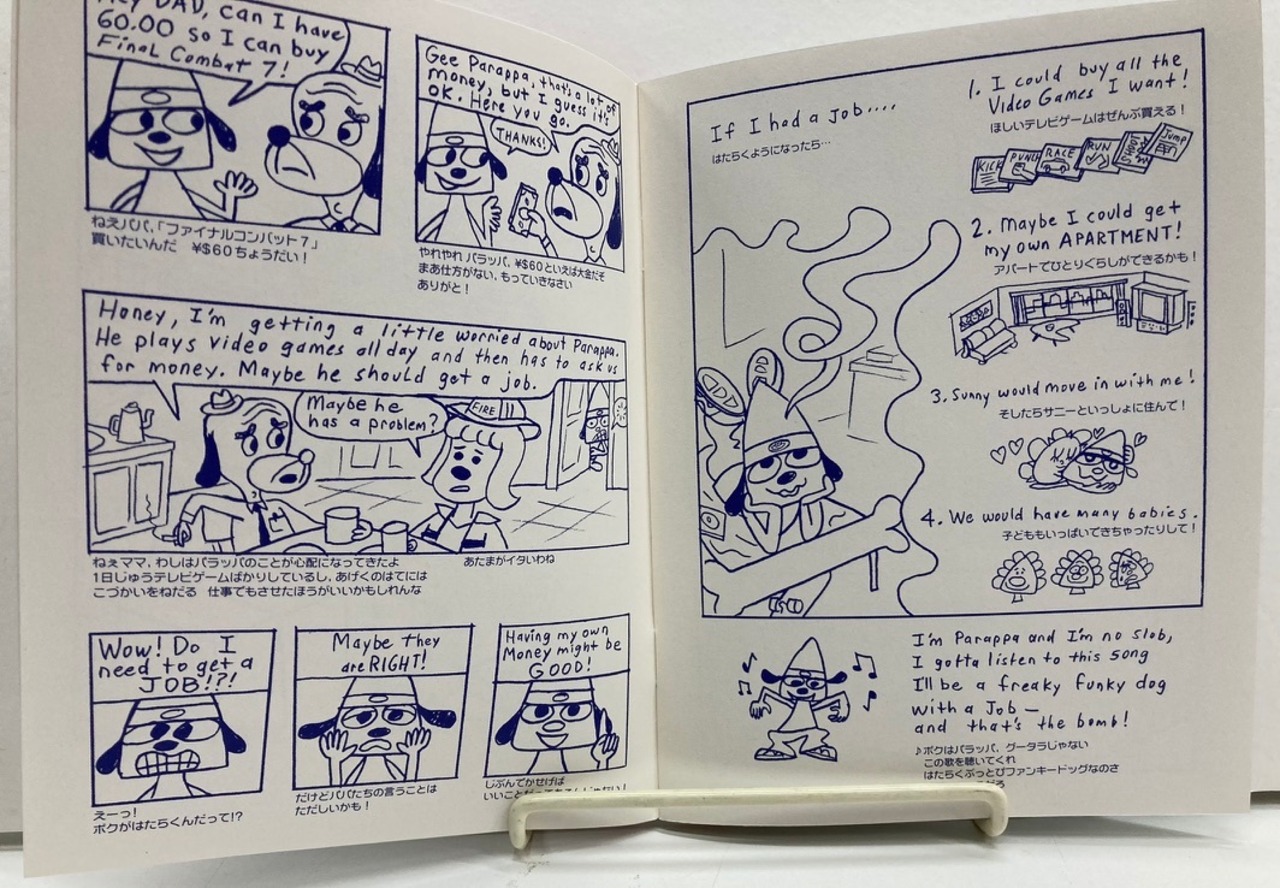 DAD, can I have
60.00 so I can buy
Final Combat 7!
ねえパパ,「ファイナルコンバット7」
買いたいんだ ¥$60ちょうだい!
Gee Parappa, that's a lot of
money, but I guess it's
OK. Here you go.
THANKS!
やれやれ パラッパ, ¥$60といえば大金だぞ
まあ仕方がない, もっていきなさい
ありがと!
Honey, I'm getting a little worried about Parappa.
He plays video games all day and then has to ask us
for money. Maybe he should get a job.
Maybe he
has a problem?
FIRE
ねぇママ, わしはパラッパのことが心配になってきたよ
1日じゅうテレビゲームばかりしているし, あげくのはてには
こづかいをねだる 仕事でもさせたほうがいいかもしれんな
あたまがイタいわね
Wow! Do I
need to get a
JOB!?!
えーっ!
ボクがはたらくんだって!?
Maybe they
are RIGHT!
だけどパパたちの言うことは
ただしいかも!
Having my own
Money might be
GOOD!
じぶんでかせげば
If I had a Job....
はたらくようになったら…
1. I could buy all the
Video Games I want!
ほしいテレビゲームはぜんぶ買える!
KICK
PUNCH
RACE
RUN
Jump
2. Maybe I could get
my own APARTMENT!
アパートでひとりぐらしができるかも!
3. Sunny would move in with me!
そしたらサニーといっしょに住んで!
4. We would have many babies.
子どももいっぱいできちゃったりして!
I'm Parappa and I'm no slob,
I gotta listen to this song
I'll be a freaky funky dog
with a Job —
and that's the bomb!
♪ボクはパラッパ, グータラじゃない
この歌を聴いてくれ
はたらくぶっとびファンキードッグなのさ